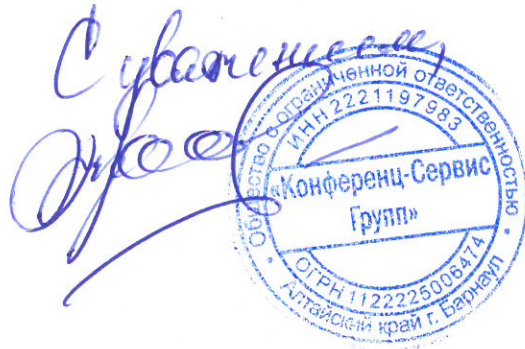 С уважением,
Общество с ограниченной ответственностью
ИНН 2221197983
«Конференц-Сервис
Групп»
ОГРН 1122225006474
Алтайский край г. Барнаул